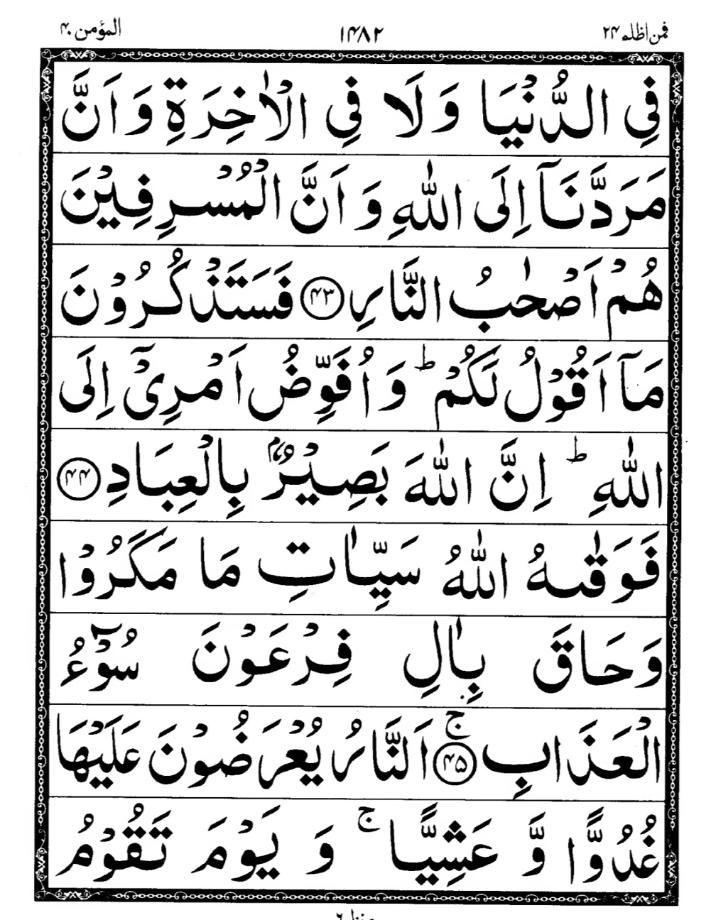 فمن اظلم ٢٤ ١٤٨٢ المؤمن ٤٠
فِي الدُّنْيَا وَلَا فِي الْاٰخِرَةِ وَاَنَّ
مَرَدَّنَآ اِلَى اللّٰهِ وَاَنَّ الْمُسْرِفِيْنَ
هُمْ اَصْحٰبُ النَّارِ ﴿٤٣﴾ فَسَتَذْكُرُوْنَ
مَآ اَقُوْلُ لَكُمْ ؕ وَاُفَوِّضُ اَمْرِيْٓ اِلَى
اللّٰهِ ؕ اِنَّ اللّٰهَ بَصِيْرٌۢ بِالْعِبَادِ ﴿٤٤﴾
فَوَقٰىهُ اللّٰهُ سَيِّاٰتِ مَا مَكَرُوْا
وَحَاقَ بِاٰلِ فِرْعَوْنَ سُوْٓءُ
الْعَذَابِ ﴿٤٥﴾ۚ اَلنَّارُ يُعْرَضُوْنَ عَلَيْهَا
غُدُوًّا وَّ عَشِيًّا ۚ وَ يَوْمَ تَقُوْمُ